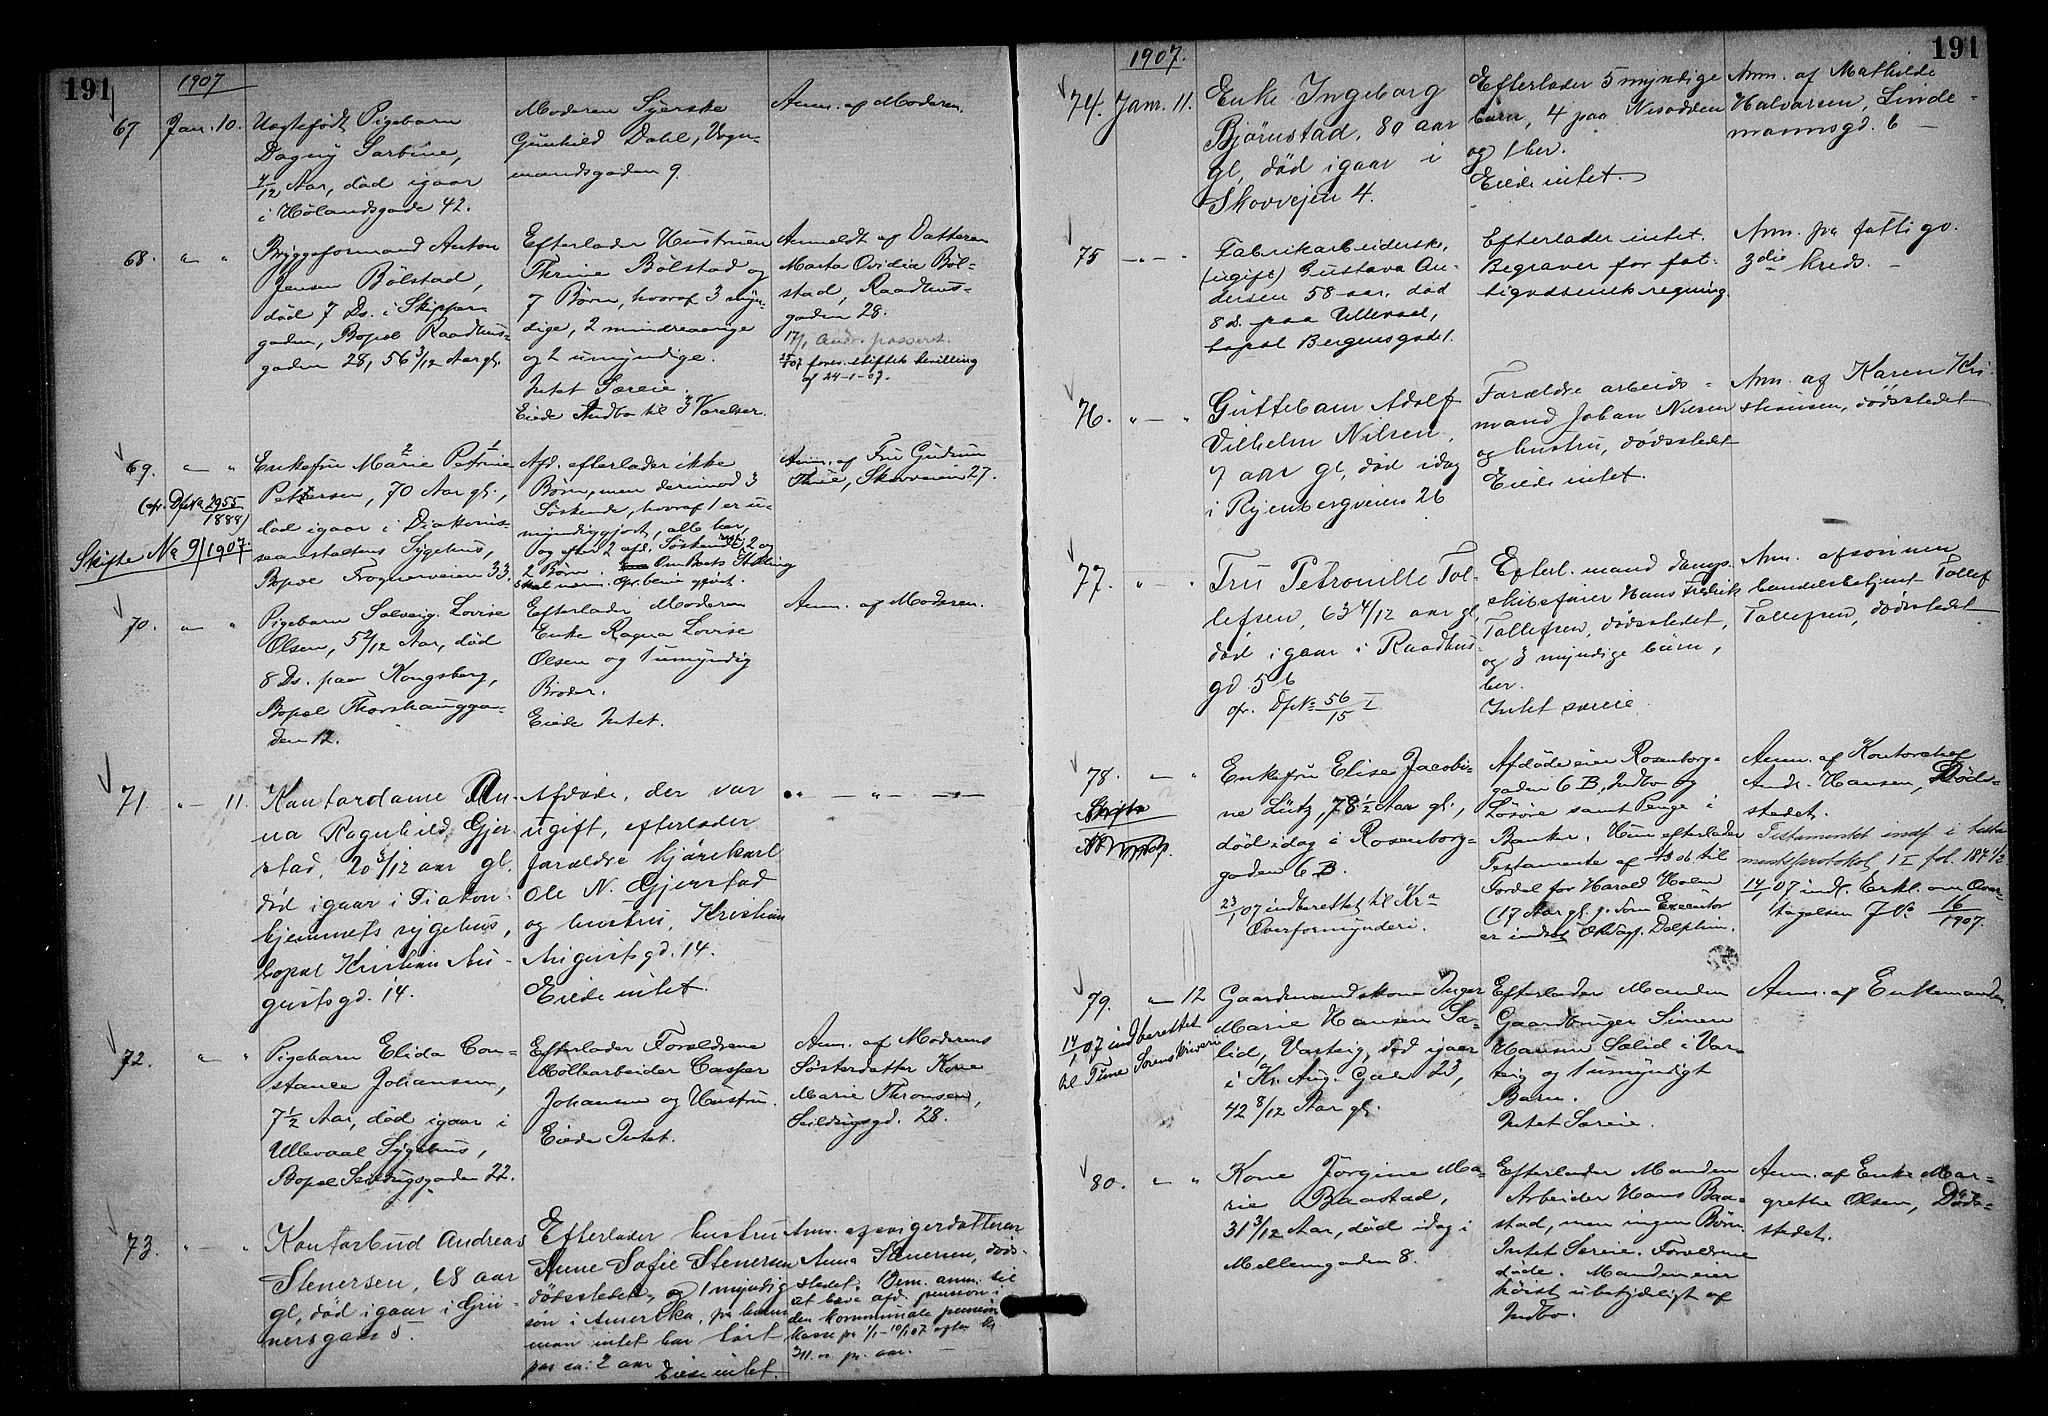 191
1907
67 Jan. 10. Uægtefødt Pigebarn
Dagny Sarbine,
7/12 Aar, død igaar
i Hølandsgade 42.
Moderen Syerske
Gunhild Dahl, Vogn-
mandsgaden 9.
Anm. af Moderen.
68. " " Bryggeformand Anton
Jensen Bølstad,
død 7 Ds. i Skipper-
gaden, Bopæl Raadhus-
gaden 28, 56 3/12 Aar gl.
Efterlader Hustruen
Thrine Bølstad og
7 Børn, hvoraf 3 myn-
dige, 2 mindreaarige
og 2 umyndige.
Intet Særeie.
Eiede Indbo til 3 Værelser.
Anmeldt af Datteren
Marta Ovidia Bøl-
stad, Raadhus-
gaden 28.
17/1 Andr. passers.
25/1 07 forev. skiftets bevilling
af 24-1-07.
69. — " Enkefru Marie Petrine
Pettersen, 70 Aar gl.,
død igaar i Diakonis-
seanstaltens Sygehus,
Bopæl Frognerveien 33.
(cfr. Df No 2955/1888)
Skifte No 9/1907.
Afd. efterlader ikke
Børn, men derimod 3
Søskende, hvoraf 1 er u-
myndiggjort, alle her,
og efter 2 afd. Søskende resp. 2 og
2 Børn. Ombuds Stilling
skal være opr. bevis gjort.
Anm. af Fru Gudrun
Thue, Skovveien 27.
70. — " Pigebarn Solveig Lovise
Olsen, 5 2/12 Aar, død
8 Ds. paa Kongsberg,
Bopæl Thorshaugga-
den 12.
Efterlader Moderen
Enke Ragna Lovise
Olsen og 1 umyndig
Broder.
Eiede Intet.
Anm. af Moderen.
71 " — 11. Kontordame An-
na Ragnhild Gjer-
stad, 20 3/12 aar gl.
død igaar i Diakon-
hjemmets sygehus,
bopæl Kristian Au-
gustsgd. 14.
Afdøde, der var
ugift, efterlader
forældre kjørekarl
Ole N. Gjerstad
og hustru, Kristian
Augustsgd. 14.
Eiede intet.
" — " — " —
72. " — " Pigebarn Elida Con-
stance Johansen,
7 1/2 Aar, død igaar i
Ullevaal Sygehus,
Bopæl Seildugsgaden 22.
Efterlader Forældrene
Møllearbeider Casper
Johansen og Hustru.
Eiede Intet.
Anm. af Moderens
Søsterdatter Kone
Marie Thronsen,
Seildugsgd. 28.
73. " — " Kontorbud Andreas
Stenersen, 68 aar
gl., død igaar i Grü-
nersgade 5.
Efterlader hustru
Anne Sofie Stenersen
dødsstedet, og 1 myndig
søn i Amerika, fra hvem
man intet har hørt
paa ca. 2 aar
Eiede intet.
Anm. af svigerdatteren
Anna Stenersen, døds-
stedet. Dem. anm. til
at hæve afd. pension i
den kommunale pension
kasse fra 1/1 - 10/1 07 efter kr
311.- pr. aar.
191
1907.
74. Jan. 11. Enke Ingeborg
Bjørnstad, 80 aar
gl, død igaar i
Skovvejen 4.
Efterlader 5 myndige
børn, 4 paa Nesodden
og 1 her.
Eiede intet.
Anm. af Mathilde
Halvorsen, Linde-
mannsgd. 6
75 — " — " Fabrikarbeiderske,
(ugift) Gustava An-
dersen 58 aar, død
8 d. paa Ullevaal,
bopæl Bergensgd 1.
Efterlader intet.
Begraver for fat-
tigvæsenets regning.
Anm. fra fattigv.
3die kreds.
76. " — " Guttebarn Adolf
Vilhelm Nilsen,
7 aar gl, død idag
i Ryenbergveien 26
Forældre arbeids-
mand Johan Nilsen
og hustru, dødsstedet
Eiede intet.
Anm. af Karen Kri-
stiansen, dødsstedet
77. " — " Fru Petronille Tol-
lefsen, 63 4/12 aar gl,
død igaar i Raadhus-
gd 56
cfr. Df No 56/15 I
Efterl. mand damp-
skibsfører Hans Fredrik
Tollefsen, dødsstedet,
og 3 myndige børn,
her.
Intet særeie
Anm. af sønnen
handelsbetjent Tollef
Tollefsen, dødsstedet
78. — " Enkefru Elise Jacobi-
ne Lütz, 78 1/2 Aar gl.,
død idag i Rosenborg-
gaden 6 B.
23/1 07 indberettet til Kra
Overformynderi.
Skifte
Afdøde eier Rosenborg-
gaden 6 B, Indbo og
Løsøre samt Penge i
Banker. Hun efterlader
Testamente af 06 til
Fordel for Harald Holm
(17 Aar gl.). Som Executor
er indsat O.r.sagf. Dolphin.
Anm. af Kontorchef
Andr. Hansen, Død-
stedet.
Testamentet indf. i testa-
mentsprotokol 1 I fol. 187 1/2
14/1 07 indl. Erkl. om Over-
tagelsen J No 16/1907.
79. " 12 Gaardmandskone Inger
Marie Hansen Sæ-
lid, Varteig, død igaar
i Kr. Aug. Gade 23,
42 8/12 Aar gl.
14/1 07 indberettet
til Tune Sorenskriveri
Efterlader Manden
Gaardbruger Simen
Hansen Sælid i Var-
teig og 1 umyndigt
Barn.
Intet Særeie.
Anm. af Enkemanden.
80. " " Kone Jørgine Ma-
rie Baastad,
31 3/12 Aar, død idag i
Møllergaden 8.
Efterlader Manden
Arbeider Hans Baa-
stad, men ingen Børn.
Intet Særeie. Forældrene
døde. Manden eier
høist ubetydeligt af
Indbo.
Anm. af Enke Mar-
grethe Olsen, Døds-
stedet.